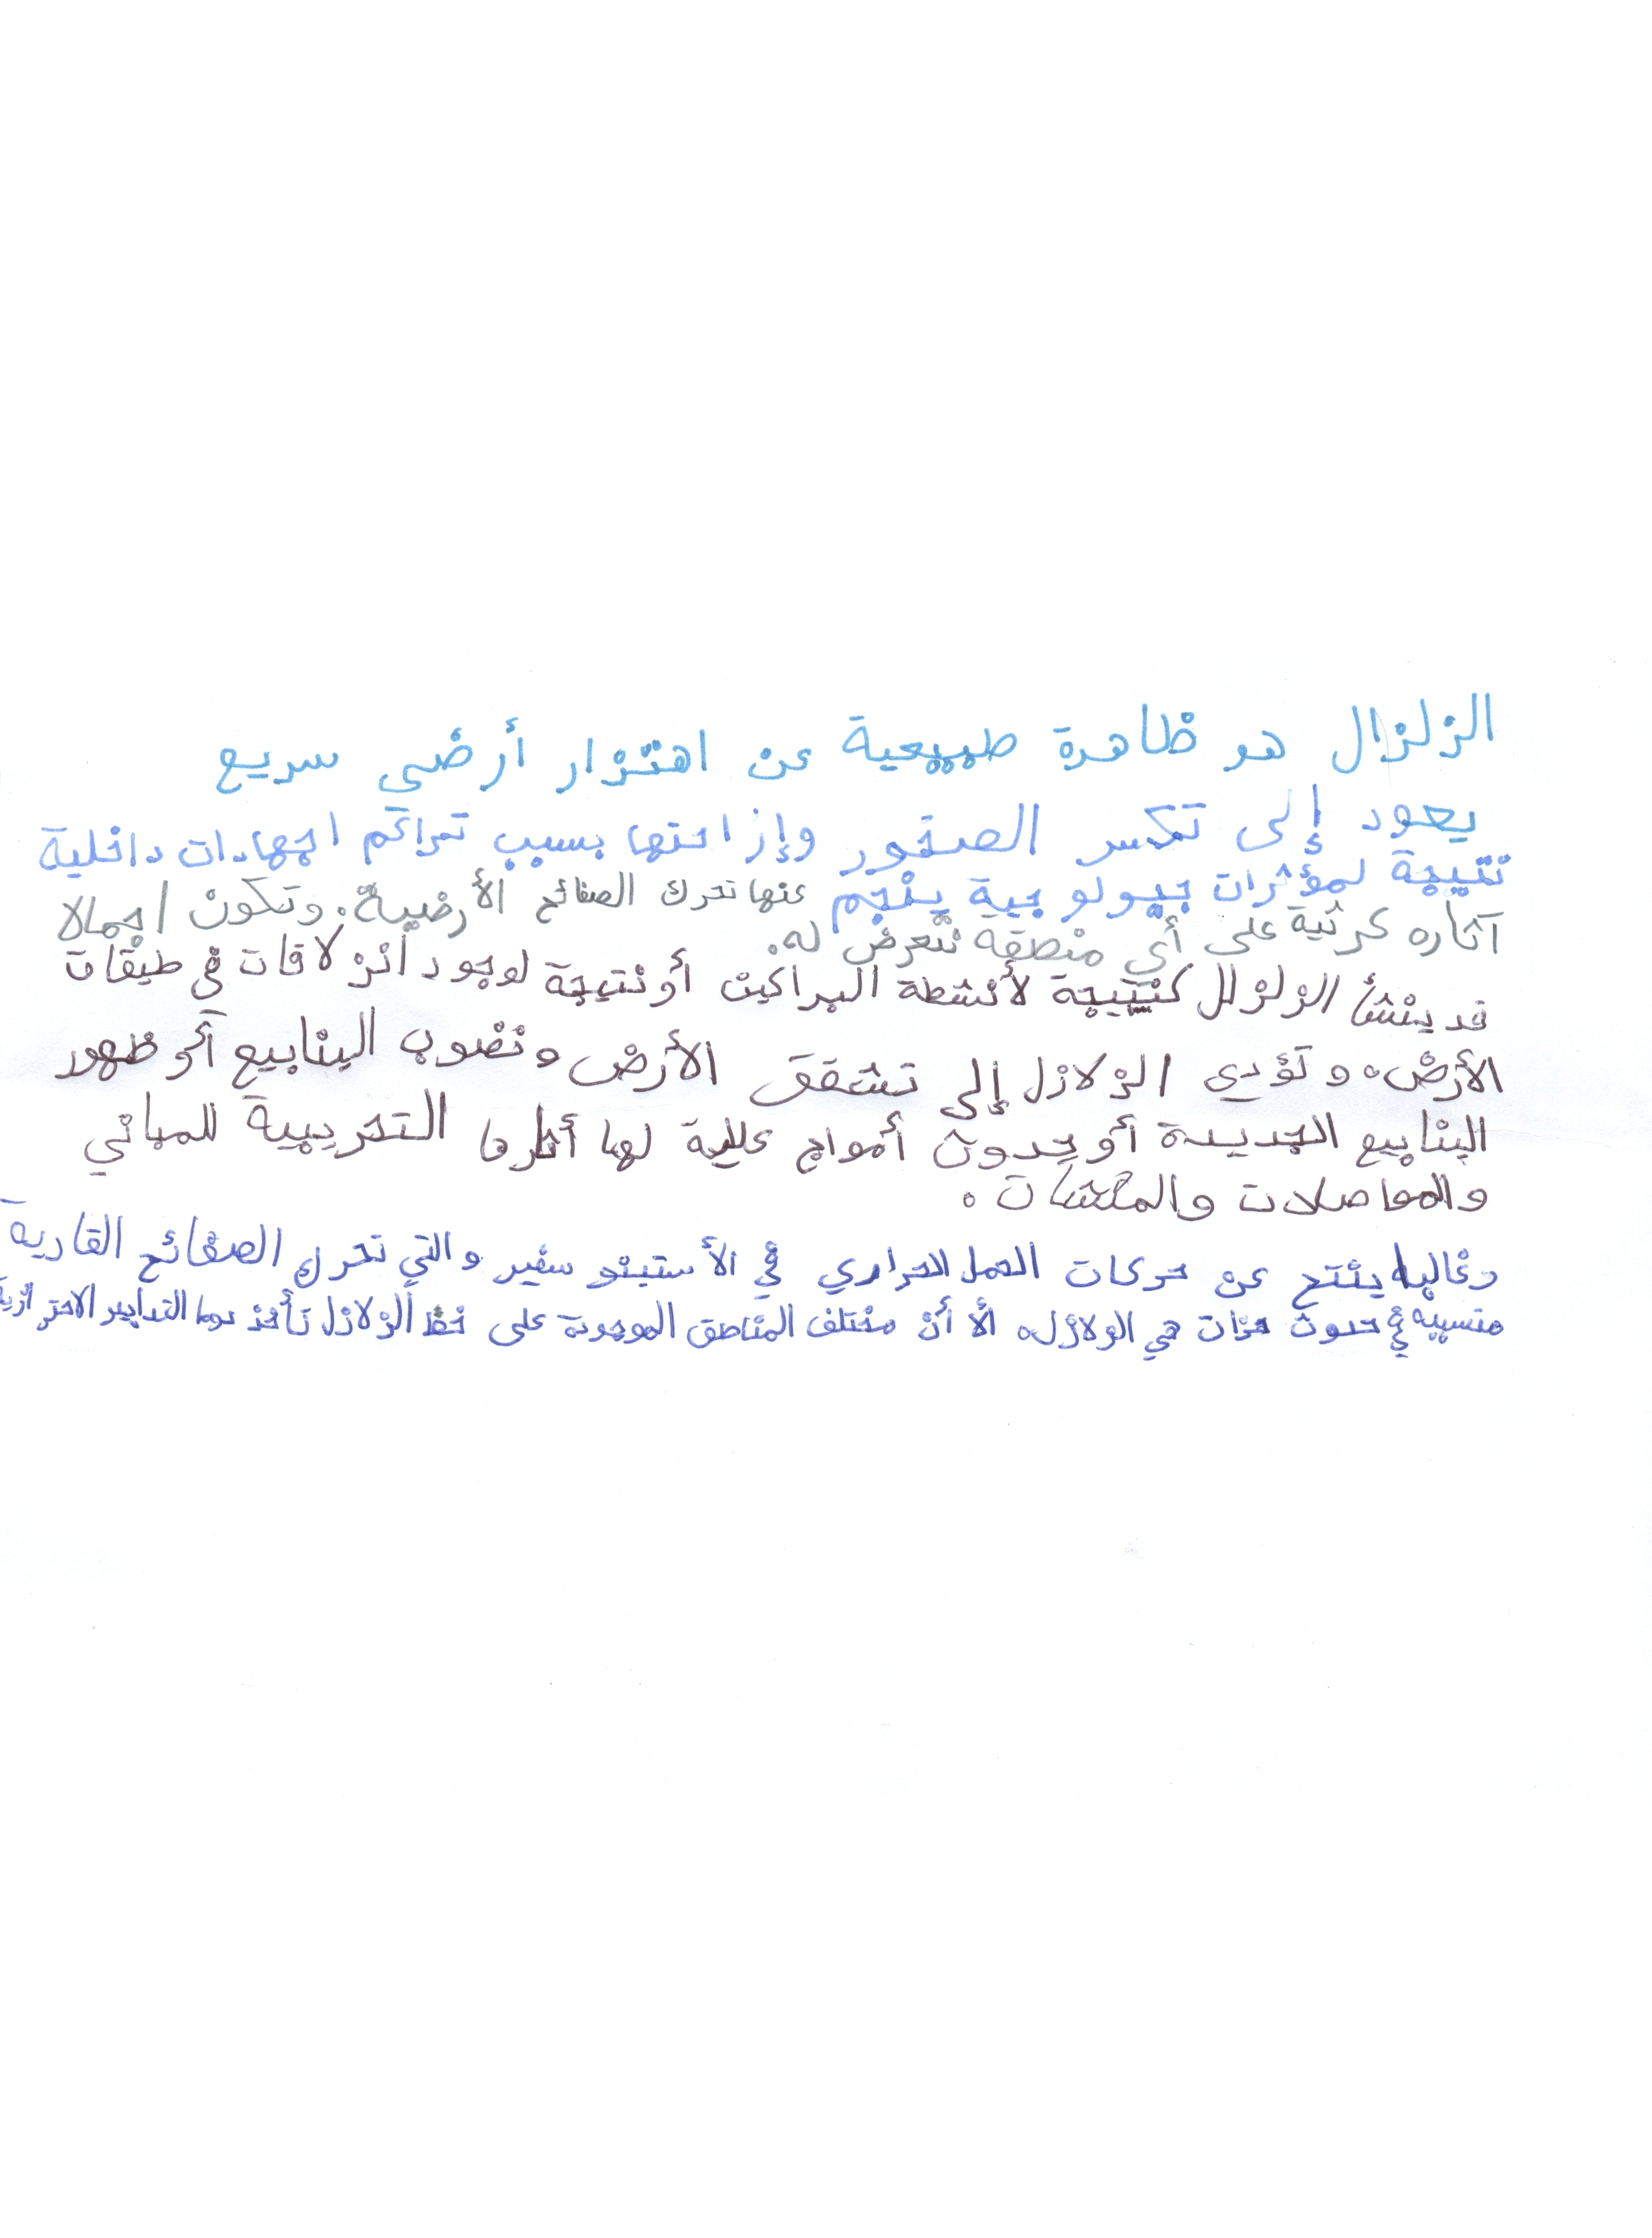 الزلزال هو ظاهرة طبيعية عن اهتزار أرضي سريع
يعود إلى تكسر الصخور وإزاحتها بسبب تراكم اجهادات داخلية
نتيجة لمؤثرات جيولوجية ينجم عنها تحرك الصفائح الأرضية. وتكون اجمالا
آثاره كرثية على أي منطقه تتعرض له.
قد ينشأ الزلزلل كنتيجة لأنشطة البراكين أو نتيجة لوجود انزلاقات في طبقات
الأرض. وتؤدي الزلازل إلى تشقق الأرض ونضوب الينابيع أو ظهور
الينابيع الجديدة أو حدوث أمواج علية لها أثارها التخريبية للمباني
والمواصلات والمنشات.
وغالبا ينتج عن حركات الحمل الحراري في الأستينو سفير والتي تحرك الصفائح القارية
متسببه في حدوث هزات هي الزلازل. الأ أن مختلف المناطق الموجودة على خط الزلازل تأخذ دوما التدابير الاحترازية